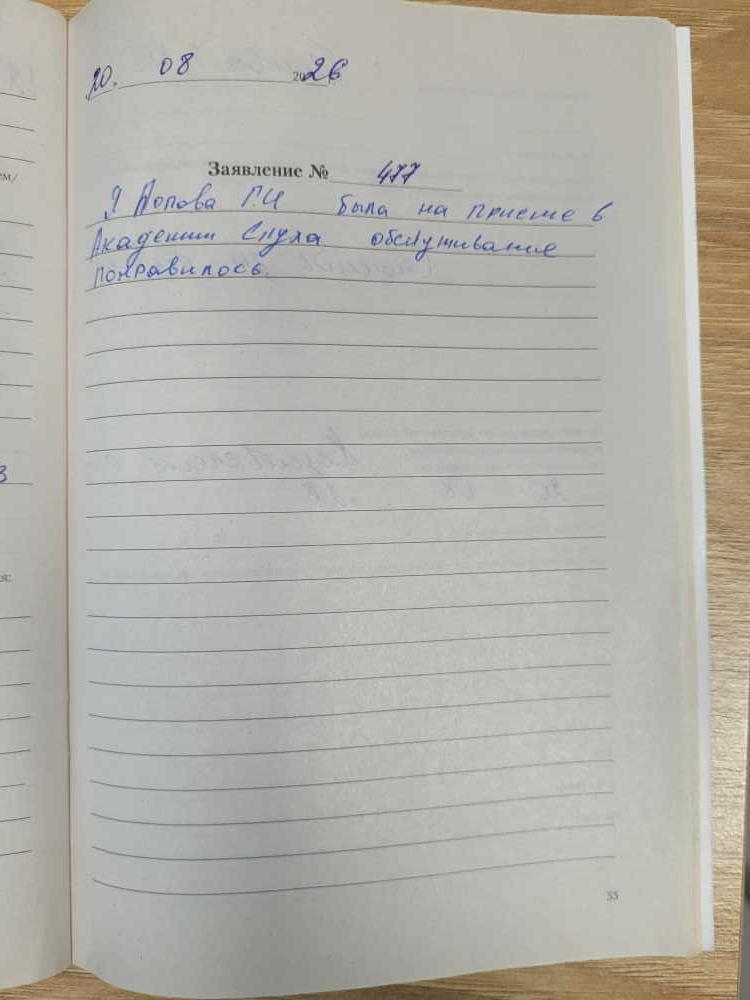 20. 08 2026
Заявление № 477
Я Попова Г.И была на приеме в
Академии Слуха обслуживание
понравилось.
55